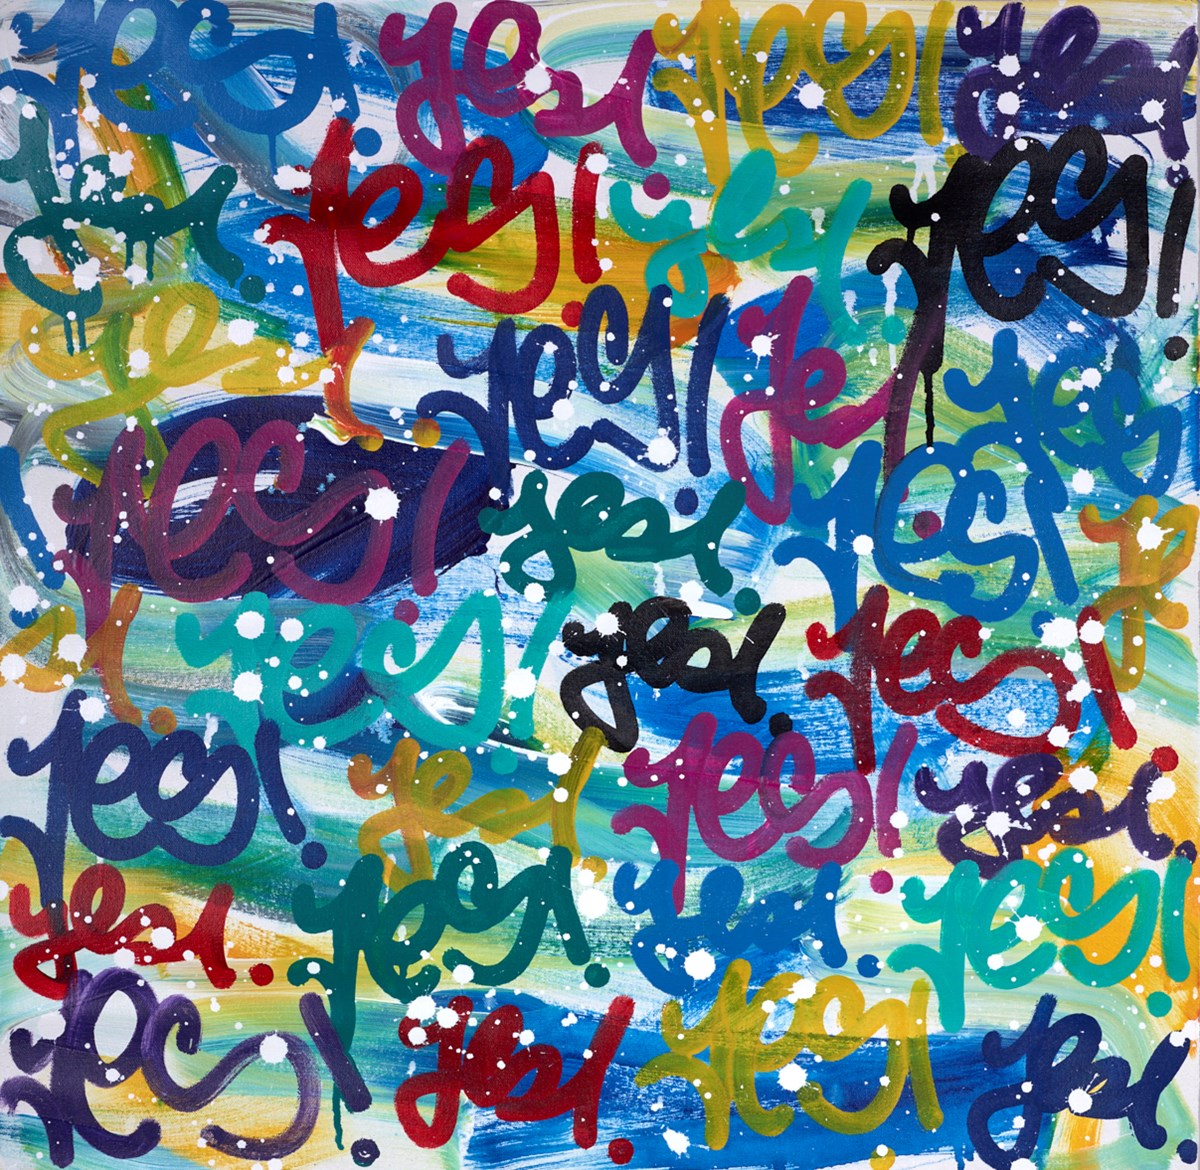 yes! yes! yes! yes!
yes! yes! yes! yes!
yes! yes! yes! yes
! yes! yes! yes! ye
s! yes! yes! yes!
yes! yes! yes! yes!
yes! yes! yes! yes!
yes! yes! yes! yes!